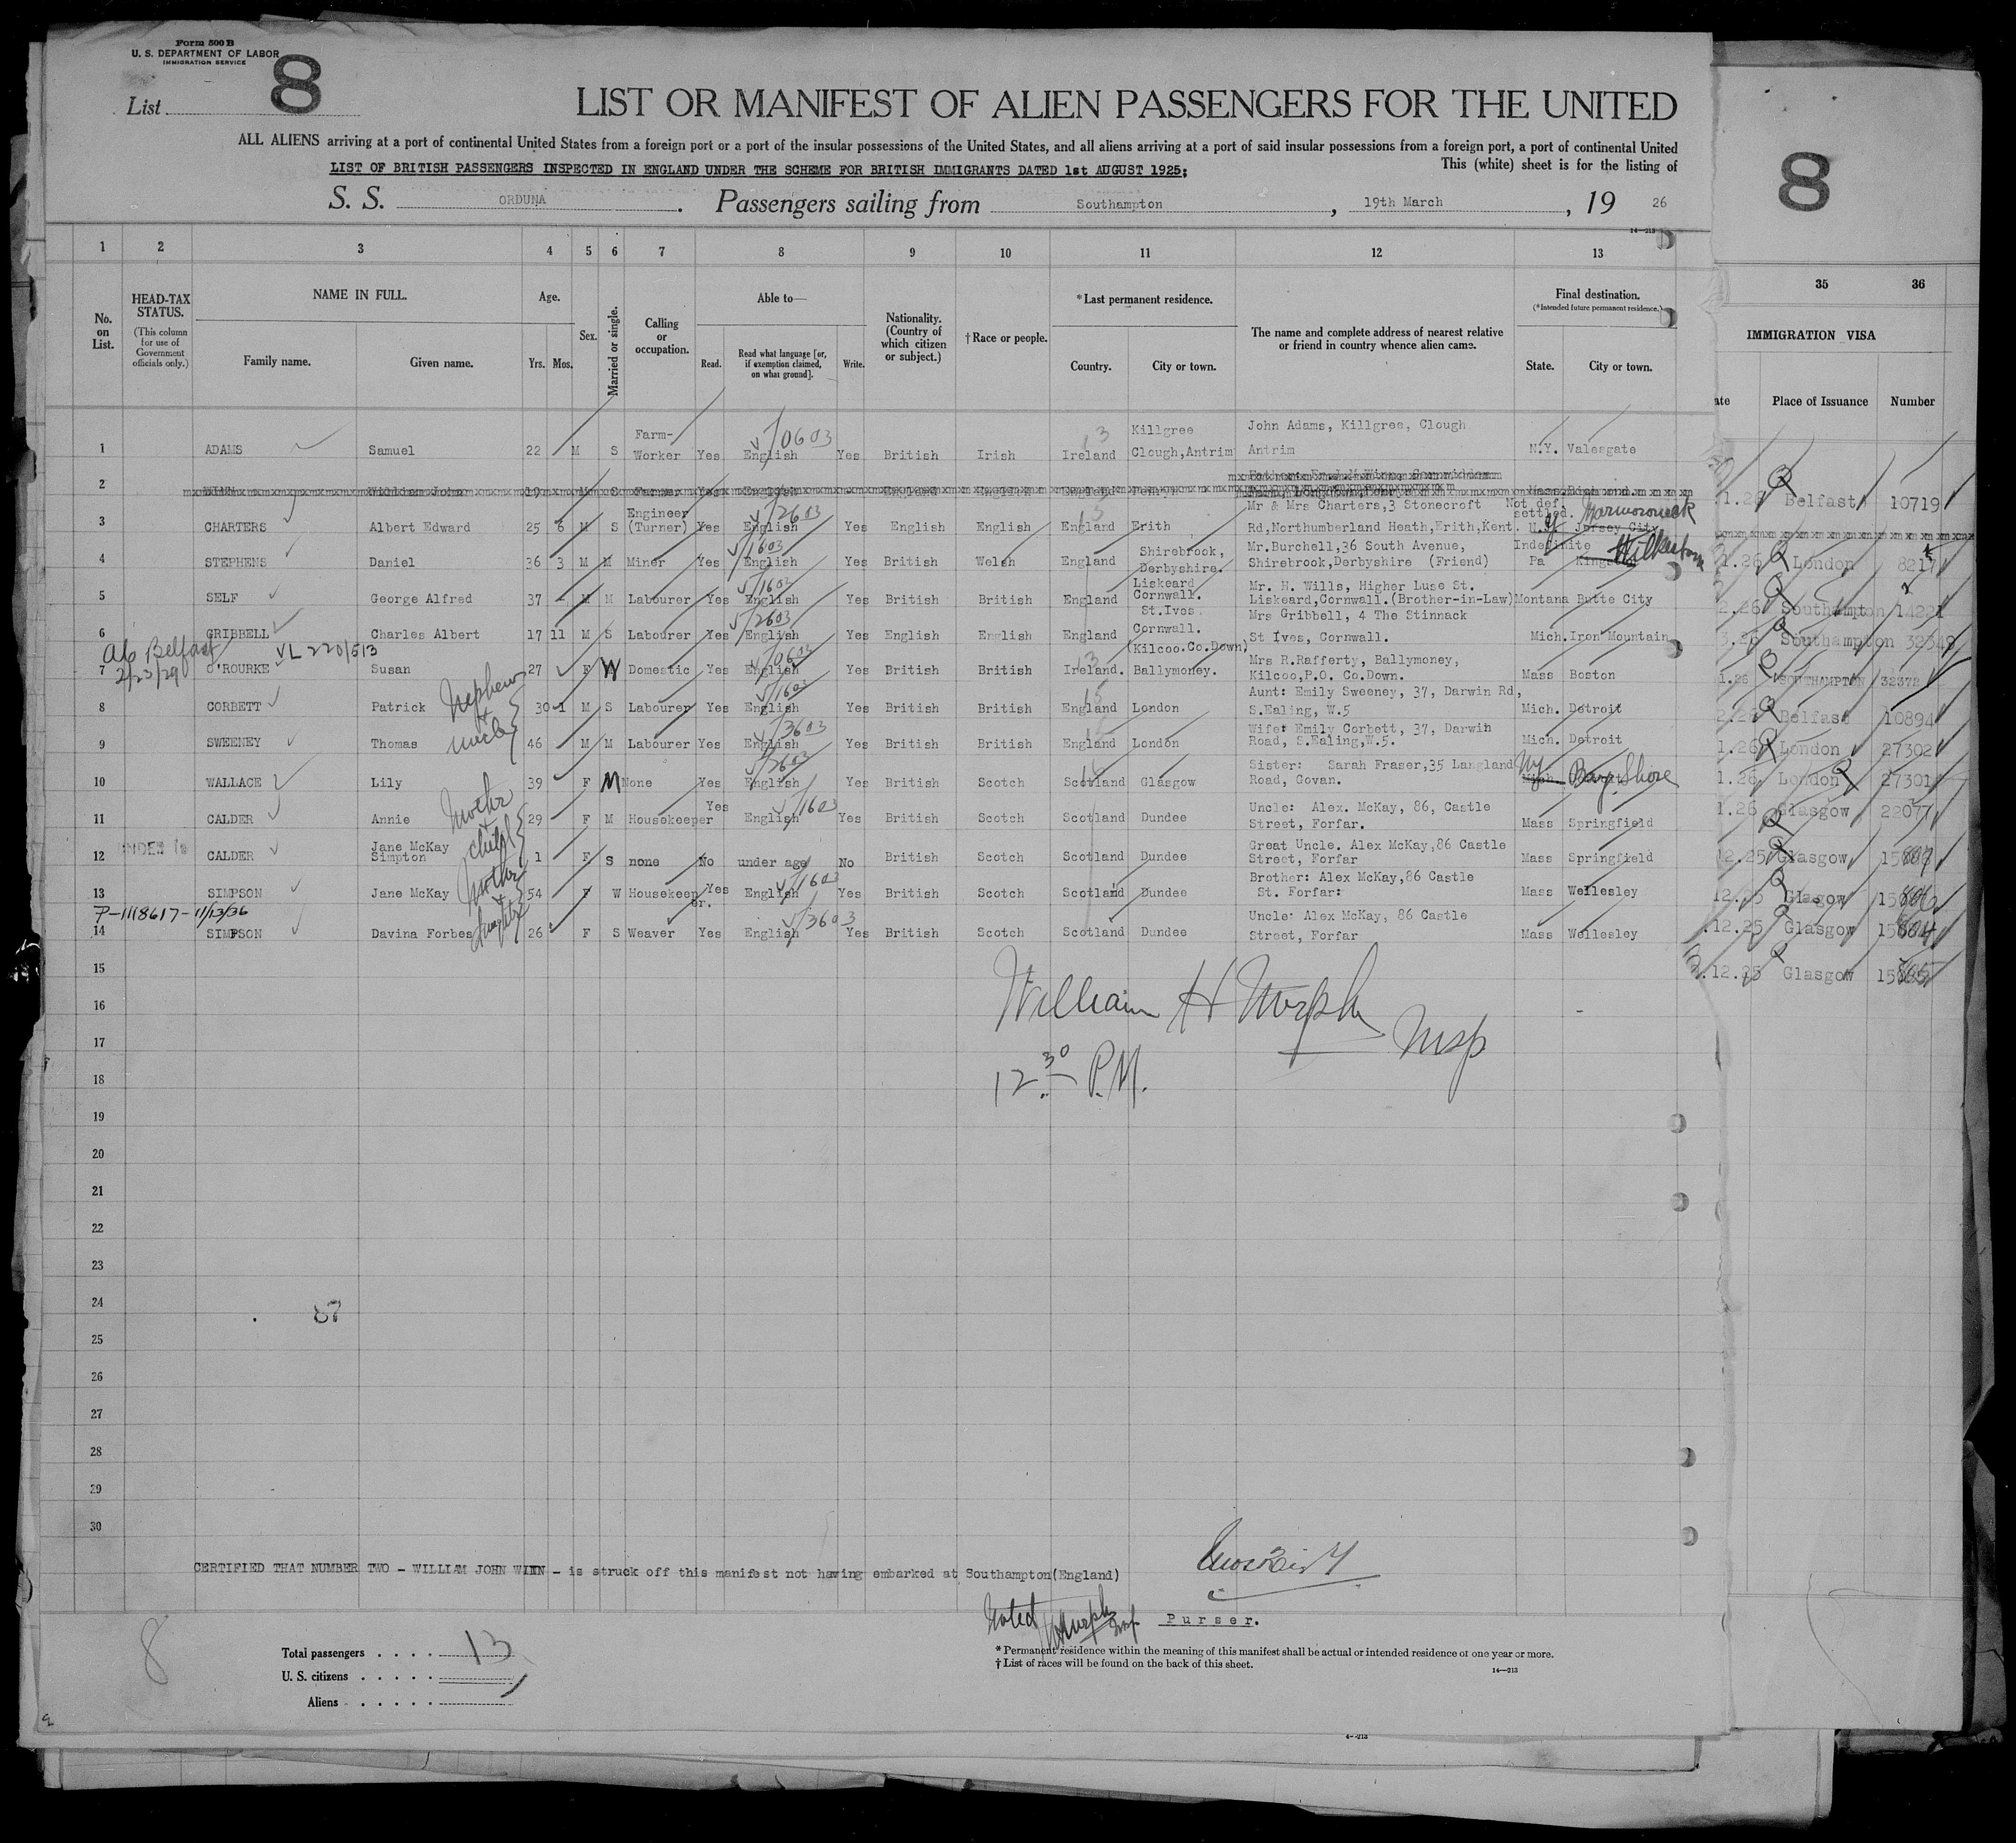 Form 500 B
U. S. DEPARTMENT OF LABOR
IMMIGRATION SERVICE
List 8
LIST OR MANIFEST OF ALIEN PASSENGERS FOR THE UNITED
ALL ALIENS arriving at a port of continental United States from a foreign port or a port of the insular possessions of the United States, and all aliens arriving at a port of said insular possessions from a foreign port, a port of continental United
LIST OF BRITISH PASSENGERS INSPECTED IN ENGLAND UNDER THE SCHEME FOR BRITISH IMMIGRANTS DATED 1st AUGUST 1925; This (white) sheet is for the listing of
S. S. ORDUNA. Passengers sailing from Southampton, 19th March, 19 26
8
14-213
1 2 3 4 5 6 7 8 9 10 11 12 13 35 36
No. on List. HEAD-TAX STATUS. (This column for use of Government officials only.) NAME IN FULL. Family name. Given name. Age. Yrs. Mos. Sex. Married or single. Calling or occupation. Able to— Read. Read what language [or, if exemption claimed, on what ground]. Write. Nationality. (Country of which citizen or subject.) †Race or people. *Last permanent residence. Country. City or town. The name and complete address of nearest relative or friend in country whence alien came. Final destination. (*Intended future permanent residence.) State. City or town.
IMMIGRATION VISA
ate Place of Issuance Number
1 ADAMS Samuel 22 M S Farm-Worker Yes English Yes British Irish Ireland Killgree Clough, Antrim John Adams, Killgree, Clough Antrim N.Y. Valesgate
2 William John 19
3 CHARTERS Albert Edward 25 6 M S Engineer (Turner) Yes English Yes English English England Erith Mr & Mrs Charters, 3 Stonecroft Rd, Northumberland Heath, Erith, Kent. Not def. settled. N.Y Jersey City
4 STEPHENS Daniel 36 3 M M Miner Yes English Yes British Welsh England Shirebrook, Derbyshire. Mr. Burchell, 36 South Avenue, Shirebrook, Derbyshire (Friend) Indefinite Pa Wilkesbarre
5 SELF George Alfred 37 - M M Labourer Yes English Yes British British England Liskeard Cornwall. Mr. H. Wills, Higher Luse St. Liskeard, Cornwall. (Brother-in-Law) Montana Butte City
6 GRIBBELL Charles Albert 17 11 M S Labourer Yes English Yes English English England St. Ives. Cornwall. Mrs Gribbell, 4 The Stinnack St Ives, Cornwall. Mich. Iron Mountain
a/c Belfast 2/23/29 VL 220/513
7 O'ROURKE Susan 27 F W Domestic Yes English Yes British British Ireland. (Kilcoo. Co. Down) Ballymoney. Mrs R. Rafferty, Ballymoney, Kilcoo, P.O. Co. Down. Mass Boston
8 CORBETT Patrick Nephew & 30 1 M S Labourer Yes English Yes British British England London Aunt: Emily Sweeney, 37, Darwin Rd, S. Ealing, W.5 Mich. Detroit
9 SWEENEY Thomas uncle 46 M M Labourer Yes English Yes British British England London Wife: Emily Corbett, 37, Darwin Road, S. Ealing, W.5. Mich. Detroit
10 WALLACE Lily 39 F M None Yes English Yes British Scotch Scotland Glasgow Sister: Sarah Fraser, 35 Langland Road, Govan. NY Bay Shore
11 CALDER Annie Mother & 29 F M Housekeeper Yes English Yes British Scotch Scotland Dundee Uncle: Alex. McKay, 86, Castle Street, Forfar. Mass Springfield
12 UNDER 16 CALDER Jane McKay Simpton child 1 F S none No under age No British Scotch Scotland Dundee Great Uncle. Alex McKay, 86 Castle Street, Forfar Mass Springfield
13 SIMPSON Jane McKay Mother & 54 F W Housekeeper. Yes English Yes British Scotch Scotland Dundee Brother: Alex McKay, 86 Castle St. Forfar: Mass Wellesley
P-1118617-11/13/36
14 SIMPSON Davina Forbes daughter 26 F S Weaver Yes English Yes British Scotch Scotland Dundee Uncle: Alex McKay, 86 Castle Street, Forfar Mass Wellesley
1.26 Belfast 10719
1.26 London 8217
2.26 Southampton 14221
3.26 Southampton 32348
1.26 SOUTHAMPTON 32372
2.26 Belfast 10894
1.26 London 27302
1.26 London 27301
1.26 Glasgow 22077
12.25 Glasgow
12.25 Glasgow
.12.25 Glasgow
.12.25 Glasgow
15
16
17
18
19
20
21
22
23
24
25
26
27
28
29
30
William H Murph Insp
12.30 P.M.
CERTIFIED THAT NUMBER TWO - WILLIAM JOHN WINN - is struck off this manifest not having embarked at Southampton(England)
Noted Murph Insp
Purser.
8
Total passengers 13
U. S. citizens
Aliens
* Permanent residence within the meaning of this manifest shall be actual or intended residence of one year or more.
† List of races will be found on the back of this sheet.
14—213
4-213